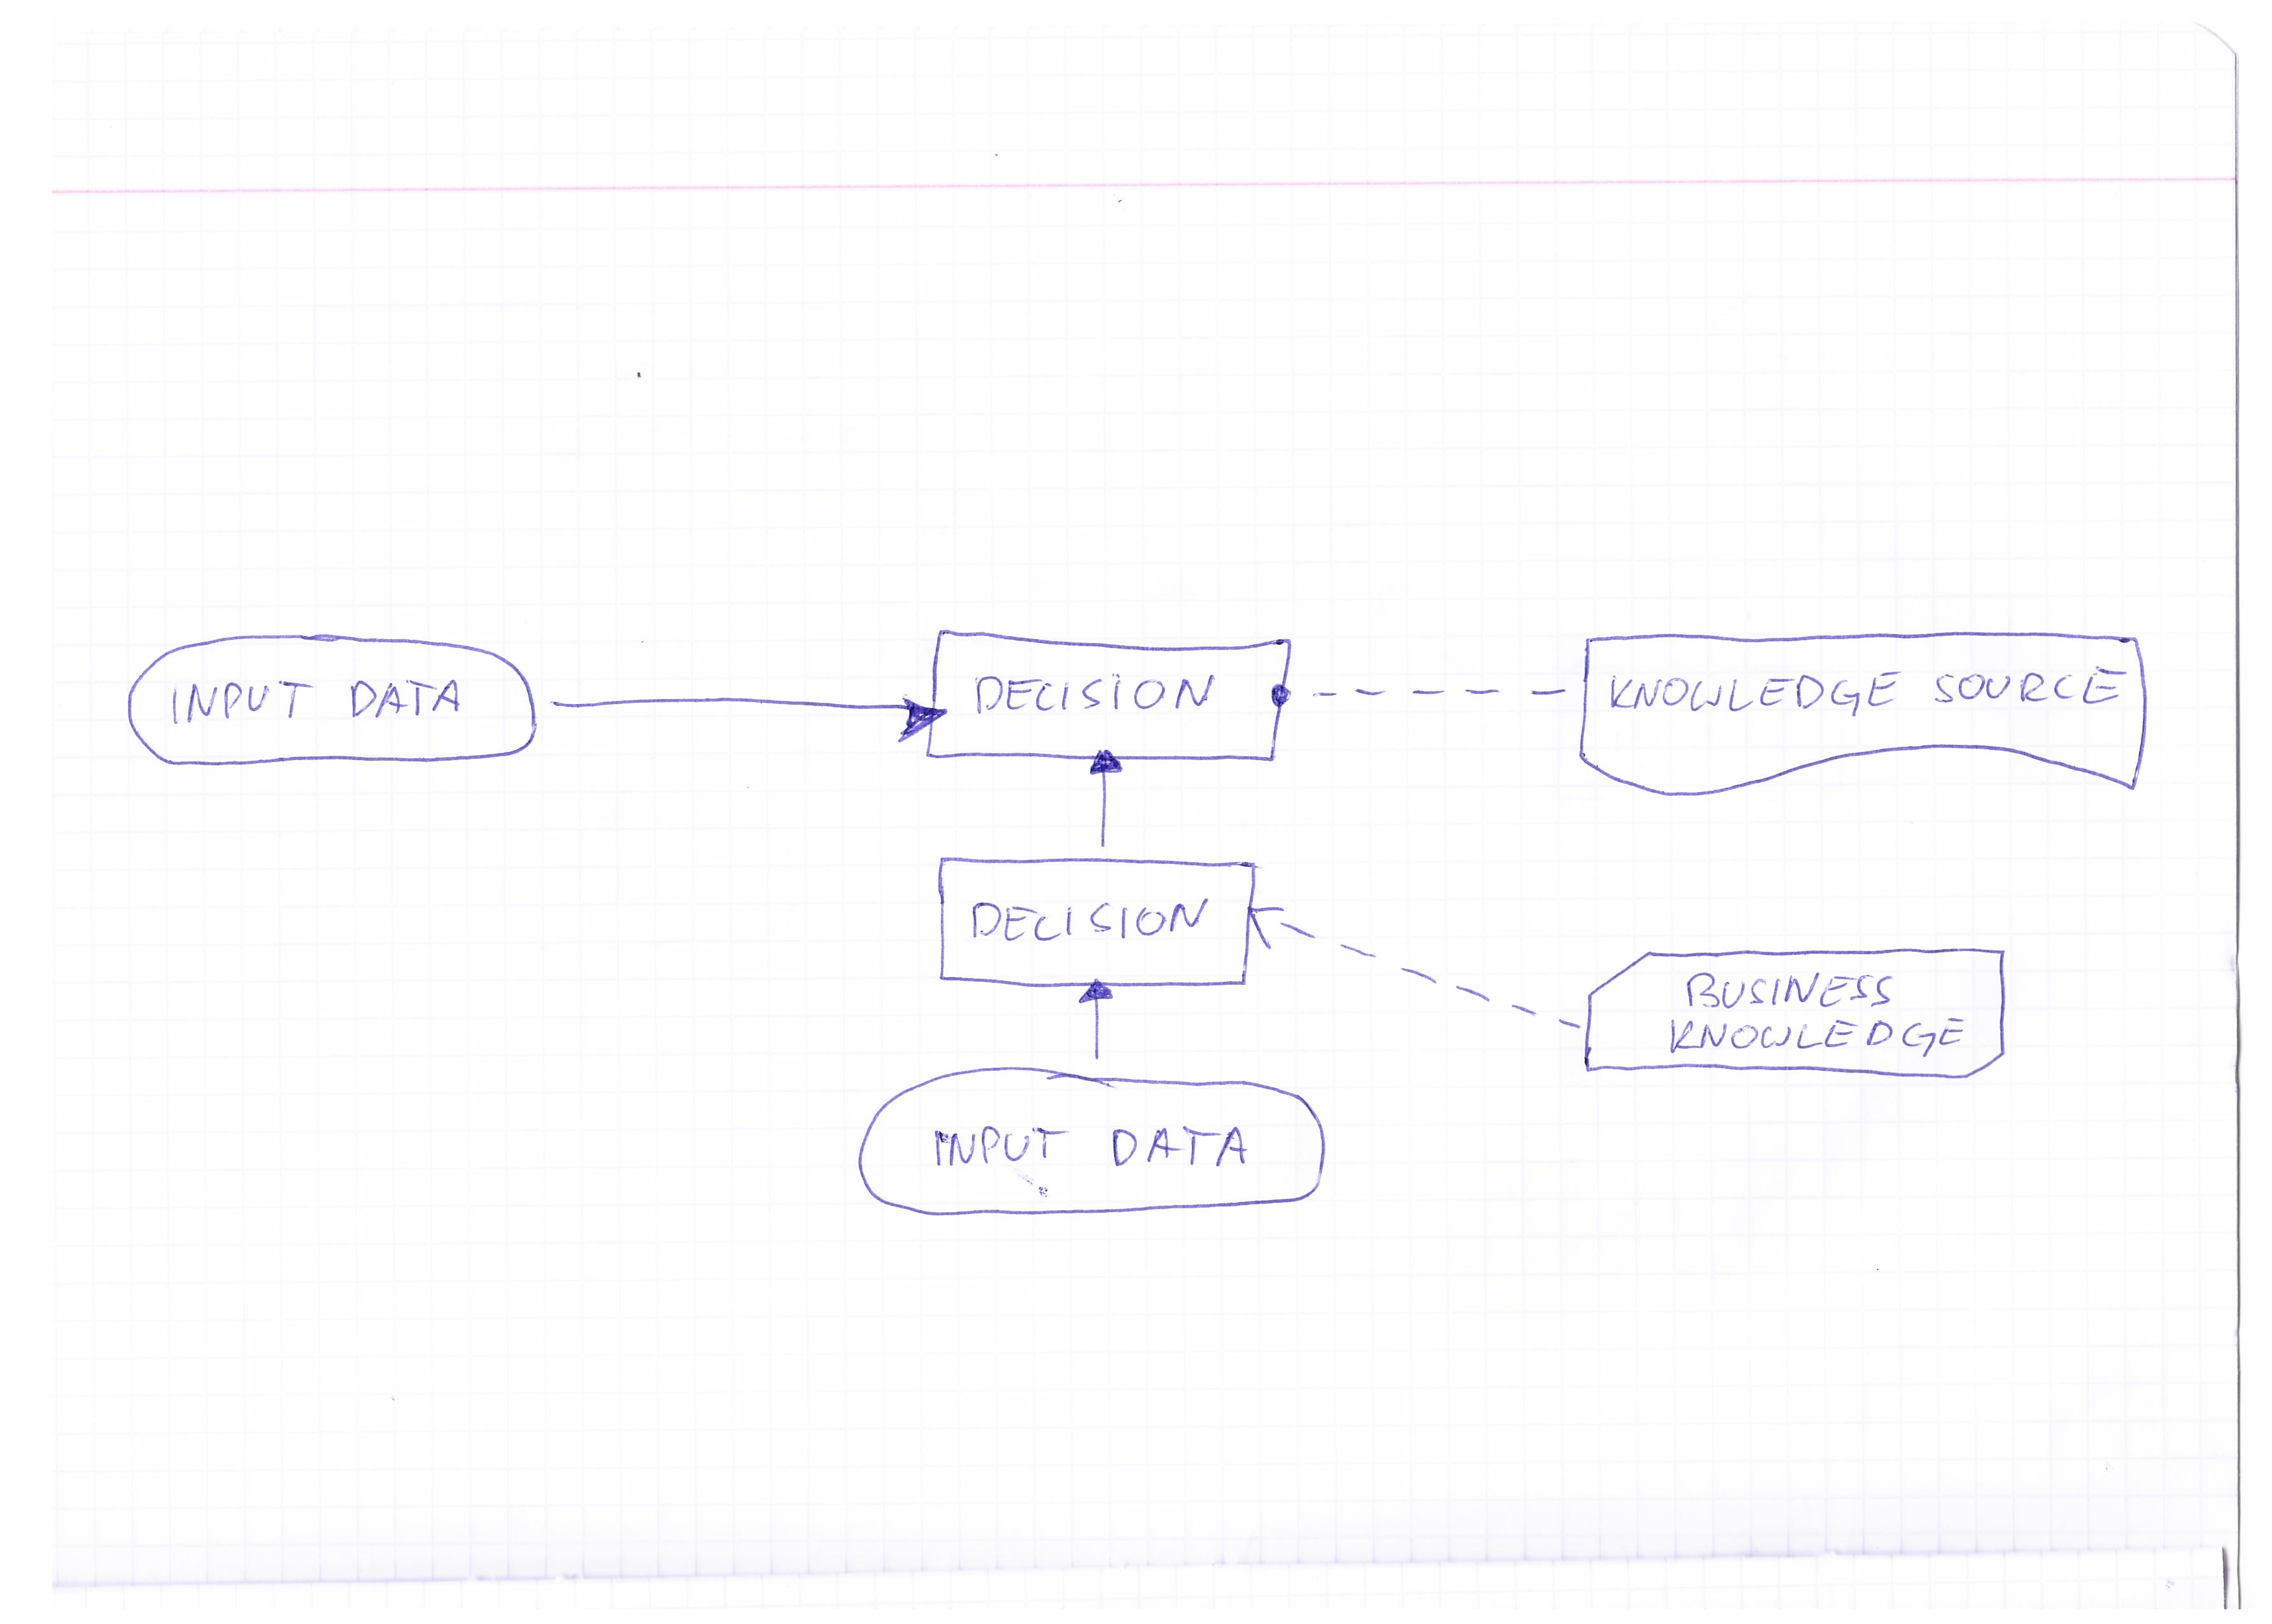 INPUT DATA
DECISION
KNOWLEDGE SOURCE
DECISION
BUSINESS
KNOWLEDGE
INPUT DATA